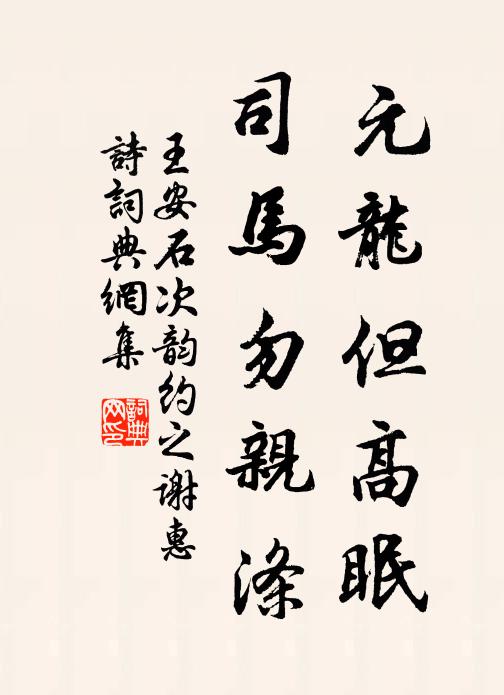 元龍但高眠
司馬勿親滌
王安石次韵約之謝惠
詩詞典網集
詞典
网印